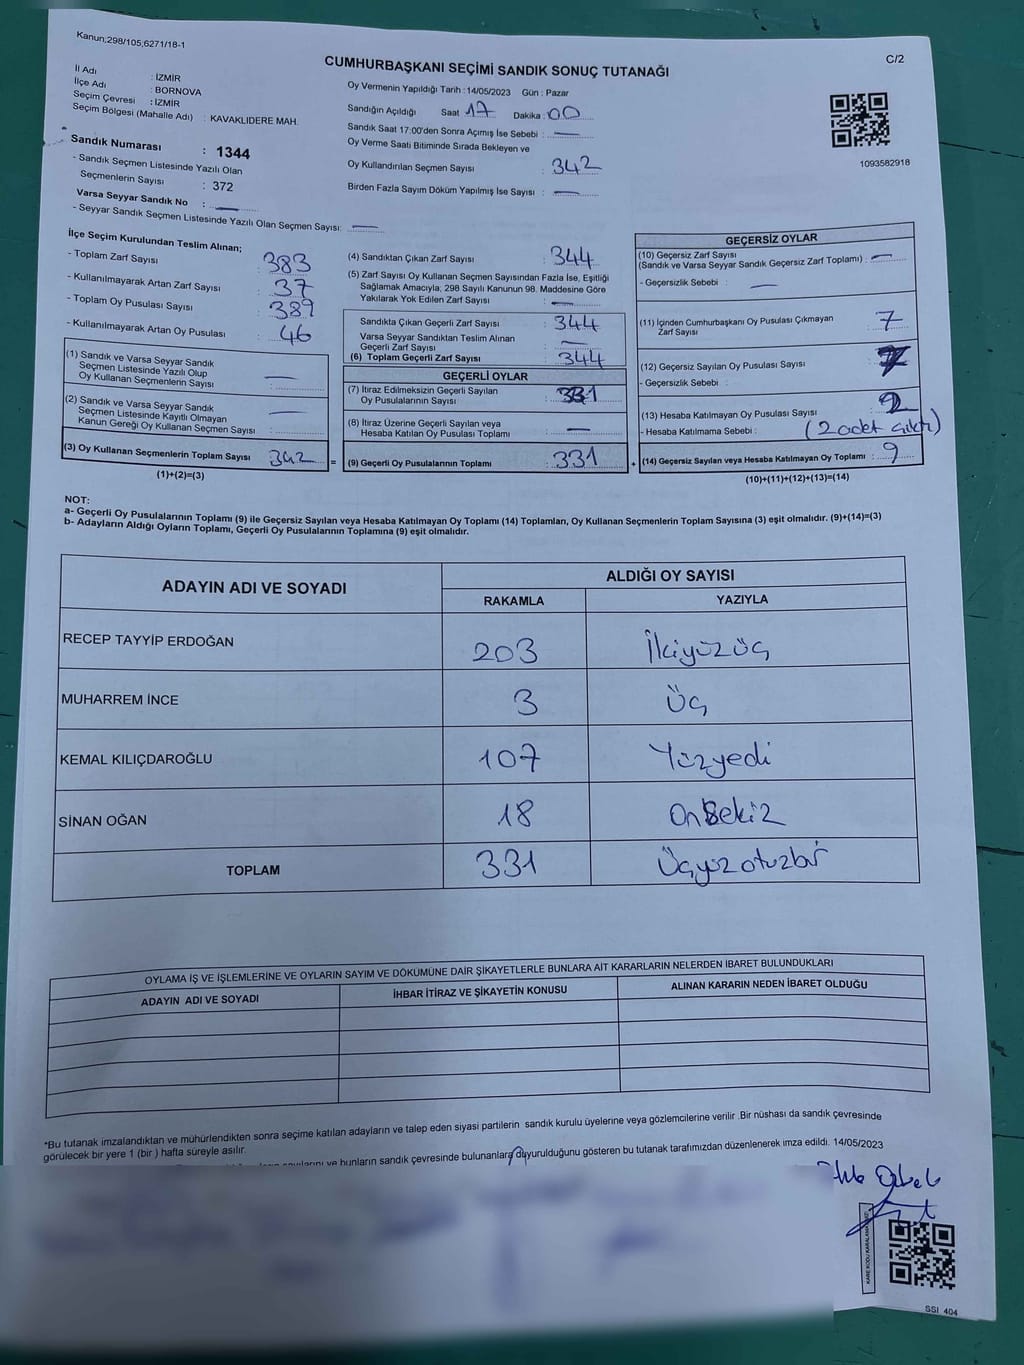 Kanun;298/105;6271/18-1
C/2
CUMHURBAŞKANI SEÇİMİ SANDIK SONUÇ TUTANAĞI
İl Adı : İZMİR
İlçe Adı : BORNOVA
Seçim Çevresi : İZMİR
Seçim Bölgesi (Mahalle Adı) : KAVAKLIDERE MAH.
Oy Vermenin Yapıldığı Tarih : 14/05/2023 Gün : Pazar
Sandığın Açıldığı Saat 17 Dakika : 00
Sandık Saat 17:00'den Sonra Açımış İse Sebebi : —
Oy Verme Saati Bitiminde Sırada Bekleyen ve
Oy Kullandırılan Seçmen Sayısı : 342
Birden Fazla Sayım Döküm Yapılmış İse Sayısı : —
1093582918
Sandık Numarası : 1344
- Sandık Seçmen Listesinde Yazılı Olan
Seçmenlerin Sayısı : 372
Varsa Seyyar Sandık No : —
- Seyyar Sandık Seçmen Listesinde Yazılı Olan Seçmen Sayısı: —
İlçe Seçim Kurulundan Teslim Alınan;
- Toplam Zarf Sayısı : 383
- Kullanılmayarak Artan Zarf Sayısı : 37
- Toplam Oy Pusulası Sayısı : 389
- Kullanılmayarak Artan Oy Pusulası : 46
(1) Sandık ve Varsa Seyyar Sandık
Seçmen Listesinde Yazılı Olup
Oy Kullanan Seçmenlerin Sayısı : —
(2) Sandık ve Varsa Seyyar Sandık
Seçmen Listesinde Kayıtlı Olmayan
Kanun Gereği Oy Kullanan Seçmen Sayısı : —
(3) Oy Kullanan Seçmenlerin Toplam Sayısı : 342 =
(1)+(2)=(3)
(4) Sandıktan Çıkan Zarf Sayısı : 344
(5) Zarf Sayısı Oy Kullanan Seçmen Sayısından Fazla İse, Eşitliği
Sağlamak Amacıyla, 298 Sayılı Kanunun 98. Maddesine Göre
Yakılarak Yok Edilen Zarf Sayısı : —
Sandıkta Çıkan Geçerli Zarf Sayısı : 344
Varsa Seyyar Sandıktan Teslim Alınan
Geçerli Zarf Sayısı : —
(6) Toplam Geçerli Zarf Sayısı : 344
GEÇERLİ OYLAR
(7) İtiraz Edilmeksizin Geçerli Sayılan
Oy Pusulalarının Sayısı : 331
(8) İtiraz Üzerine Geçerli Sayılan veya
Hesaba Katılan Oy Pusulası Toplamı : —
(9) Geçerli Oy Pusulalarının Toplamı : 331 +
GEÇERSİZ OYLAR
(10) Geçersiz Zarf Sayısı
(Sandık ve Varsa Seyyar Sandık Geçersiz Zarf Toplamı) : —
- Geçersizlik Sebebi : —
(11) İçinden Cumhurbaşkanı Oy Pusulası Çıkmayan
Zarf Sayısı : 7
(12) Geçersiz Sayılan Oy Pusulası Sayısı :
- Geçersizlik Sebebi :
(13) Hesaba Katılmayan Oy Pusulası Sayısı : 2
- Hesaba Katılmama Sebebi : (2 adet çıktı)
(14) Geçersiz Sayılan veya Hesaba Katılmayan Oy Toplamı : 9
(10)+(11)+(12)+(13)=(14)
NOT:
a- Geçerli Oy Pusulalarının Toplamı (9) ile Geçersiz Sayılan veya Hesaba Katılmayan Oy Toplamı (14) Toplamları, Oy Kullanan Seçmenlerin Toplam Sayısına (3) eşit olmalıdır. (9)+(14)=(3)
b- Adayların Aldığı Oyların Toplamı, Geçerli Oy Pusulalarının Toplamına (9) eşit olmalıdır.
ADAYIN ADI VE SOYADI
ALDIĞI OY SAYISI
RAKAMLA YAZIYLA
RECEP TAYYİP ERDOĞAN 203 İkiyüzüç
MUHARREM İNCE 3 Üç
KEMAL KILIÇDAROĞLU 107 Yüzyedi
SİNAN OĞAN 18 Onsekiz
TOPLAM 331 Üçyüzotuzbir
OYLAMA İŞ VE İŞLEMLERİNE VE OYLARIN SAYIM VE DÖKÜMÜNE DAİR ŞİKAYETLERLE BUNLARA AİT KARARLARIN NELERDEN İBARET BULUNDUKLARI
ADAYIN ADI VE SOYADI İHBAR İTİRAZ VE ŞİKAYETİN KONUSU ALINAN KARARIN NEDEN İBARET OLDUĞU
*Bu tutanak imzalandıktan ve mühürlendikten sonra seçime katılan adayların ve talep eden siyasi partilerin sandık kurulu üyelerine veya gözlemcilerine verilir .Bir nüshası da sandık çevresinde
görülecek bir yere 1 (bir ) hafta süreyle asılır.
ve bunların sandık çevresinde bulunanlara duyurulduğunu gösteren bu tutanak tarafımızdan düzenlenerek imza edildi. 14/05/2023
SSI 404